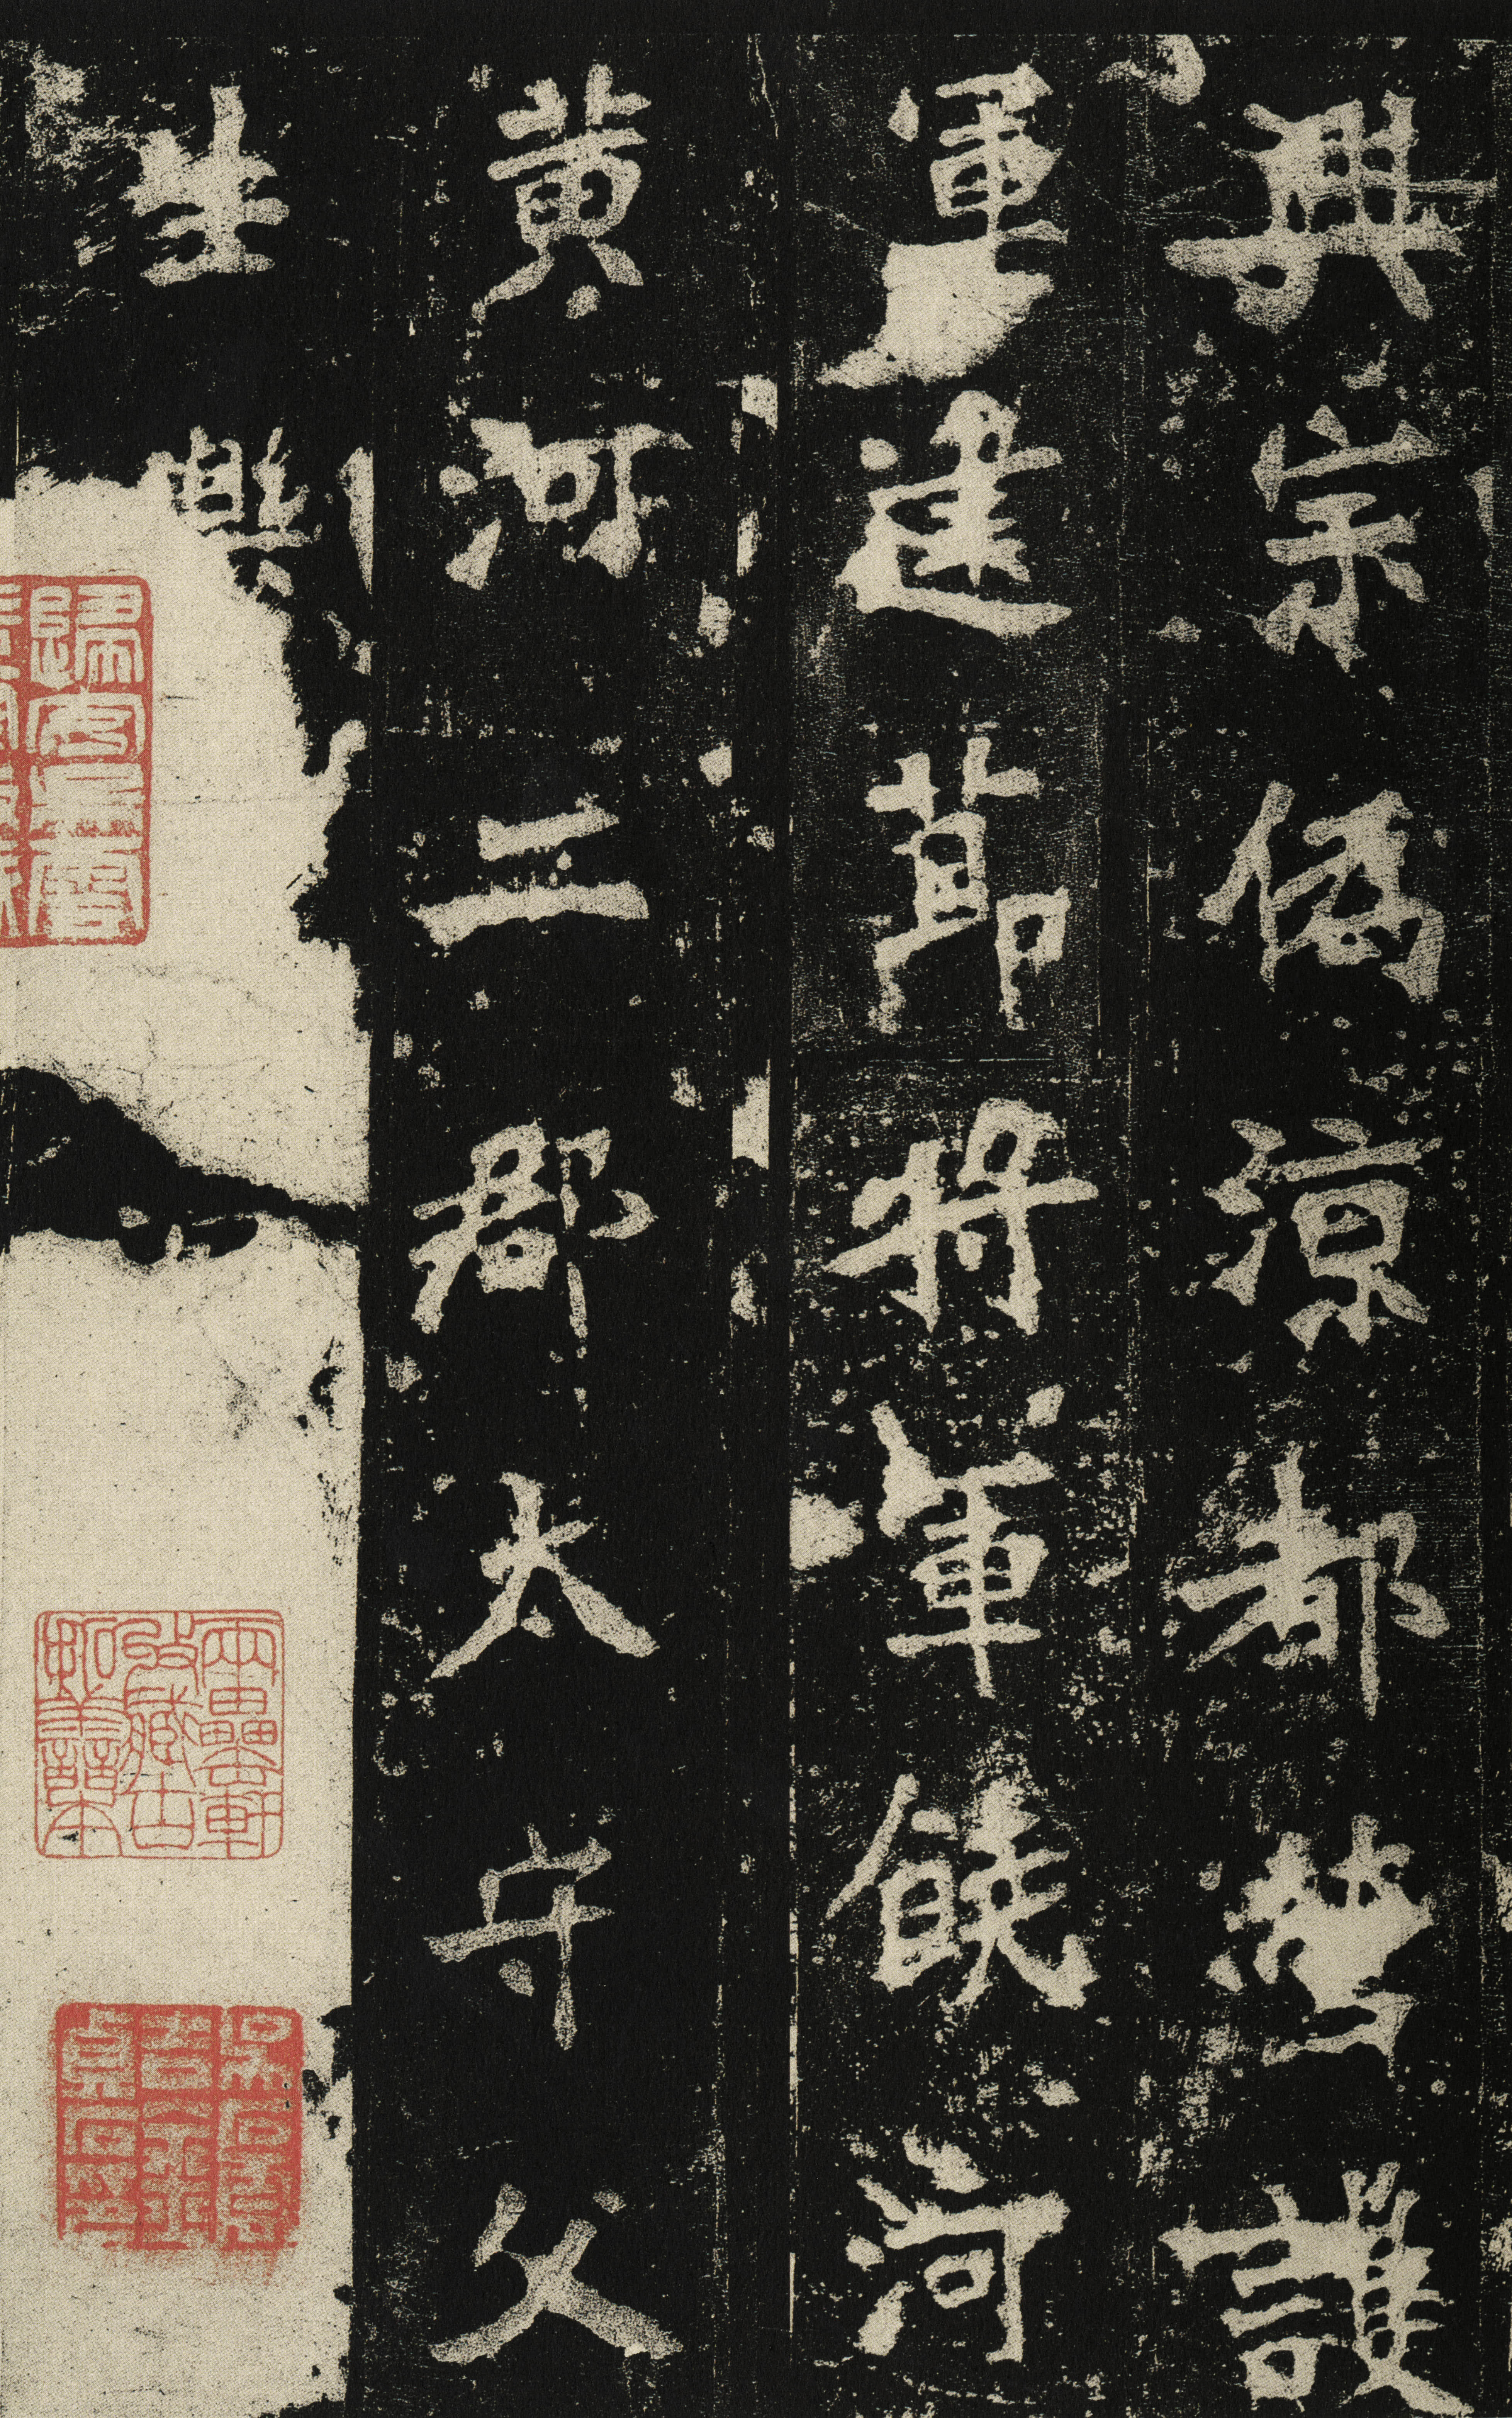 興宗偽涼都營護
軍建節將軍饒河
黃河二郡太守父
生與